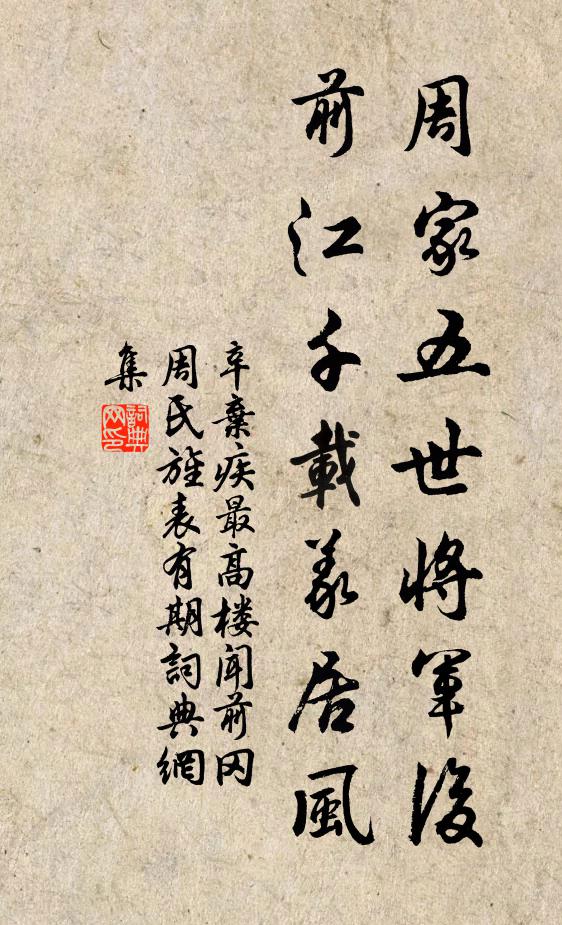 周家五世將軍後
前江千載義居風
辛棄疾最高楼聞前冈
周氏旌表有期詞典網
集
詞典
网印